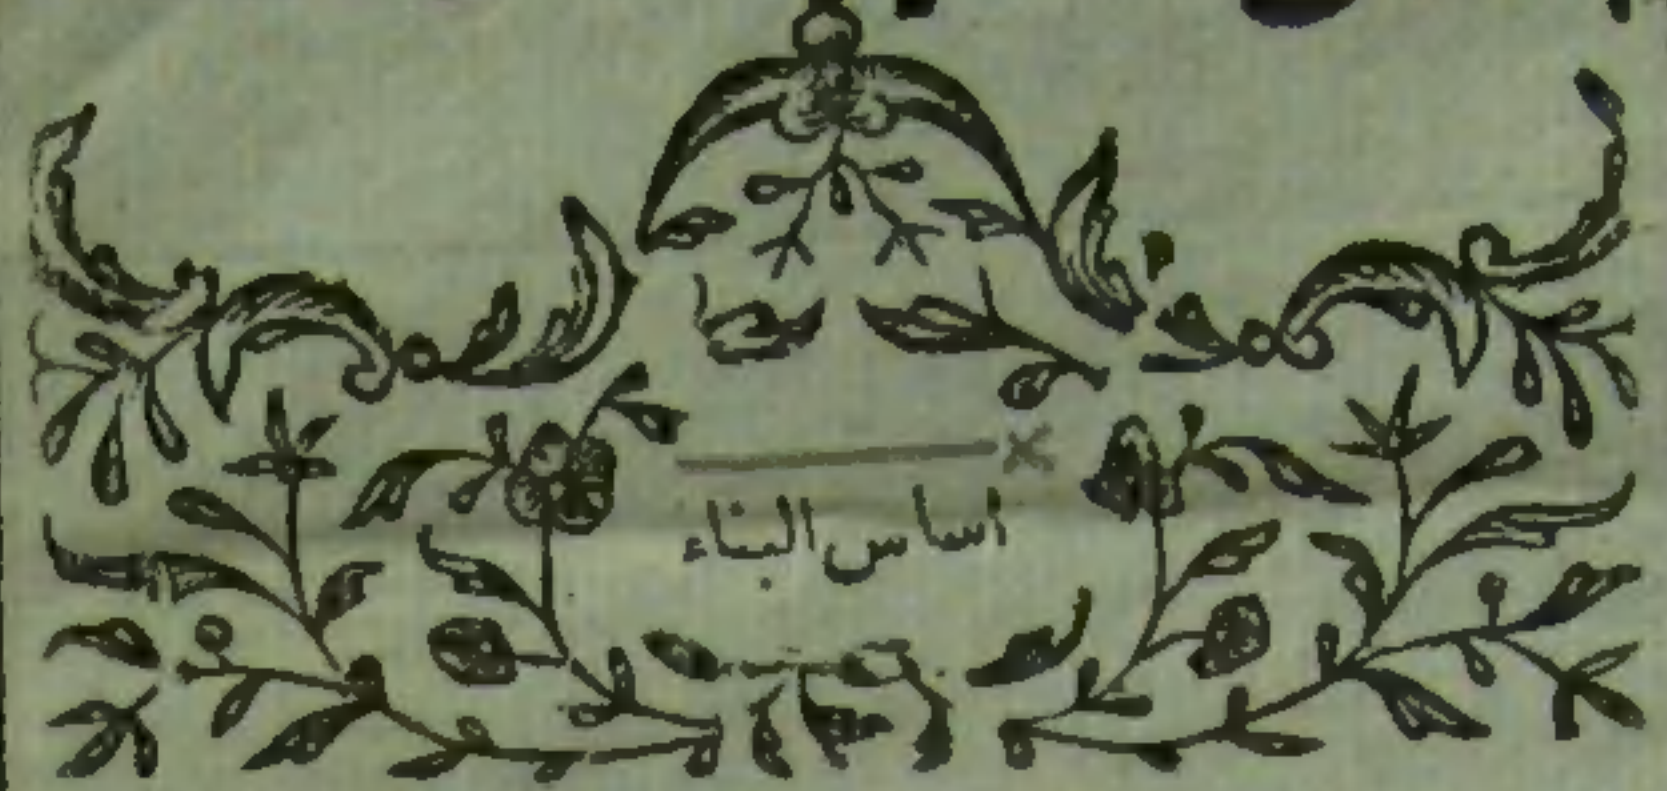 اساس البناء